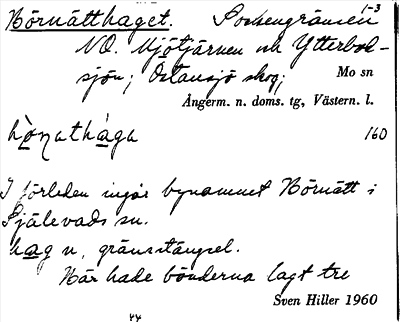 Hörnätthaget. Sockengränsen 1-3
NO. Mjötjärnen och Ytterbok-
sjön; Östansjö skog; Mo sn
Ångerm. n. doms. tg, Västern. l.
160
I förleden ingår bynamnet Hörnätt i
Själevads sn.
hag n, gränsstängsel.
Här hade bönderna lagt tre
Sven Hiller 1960